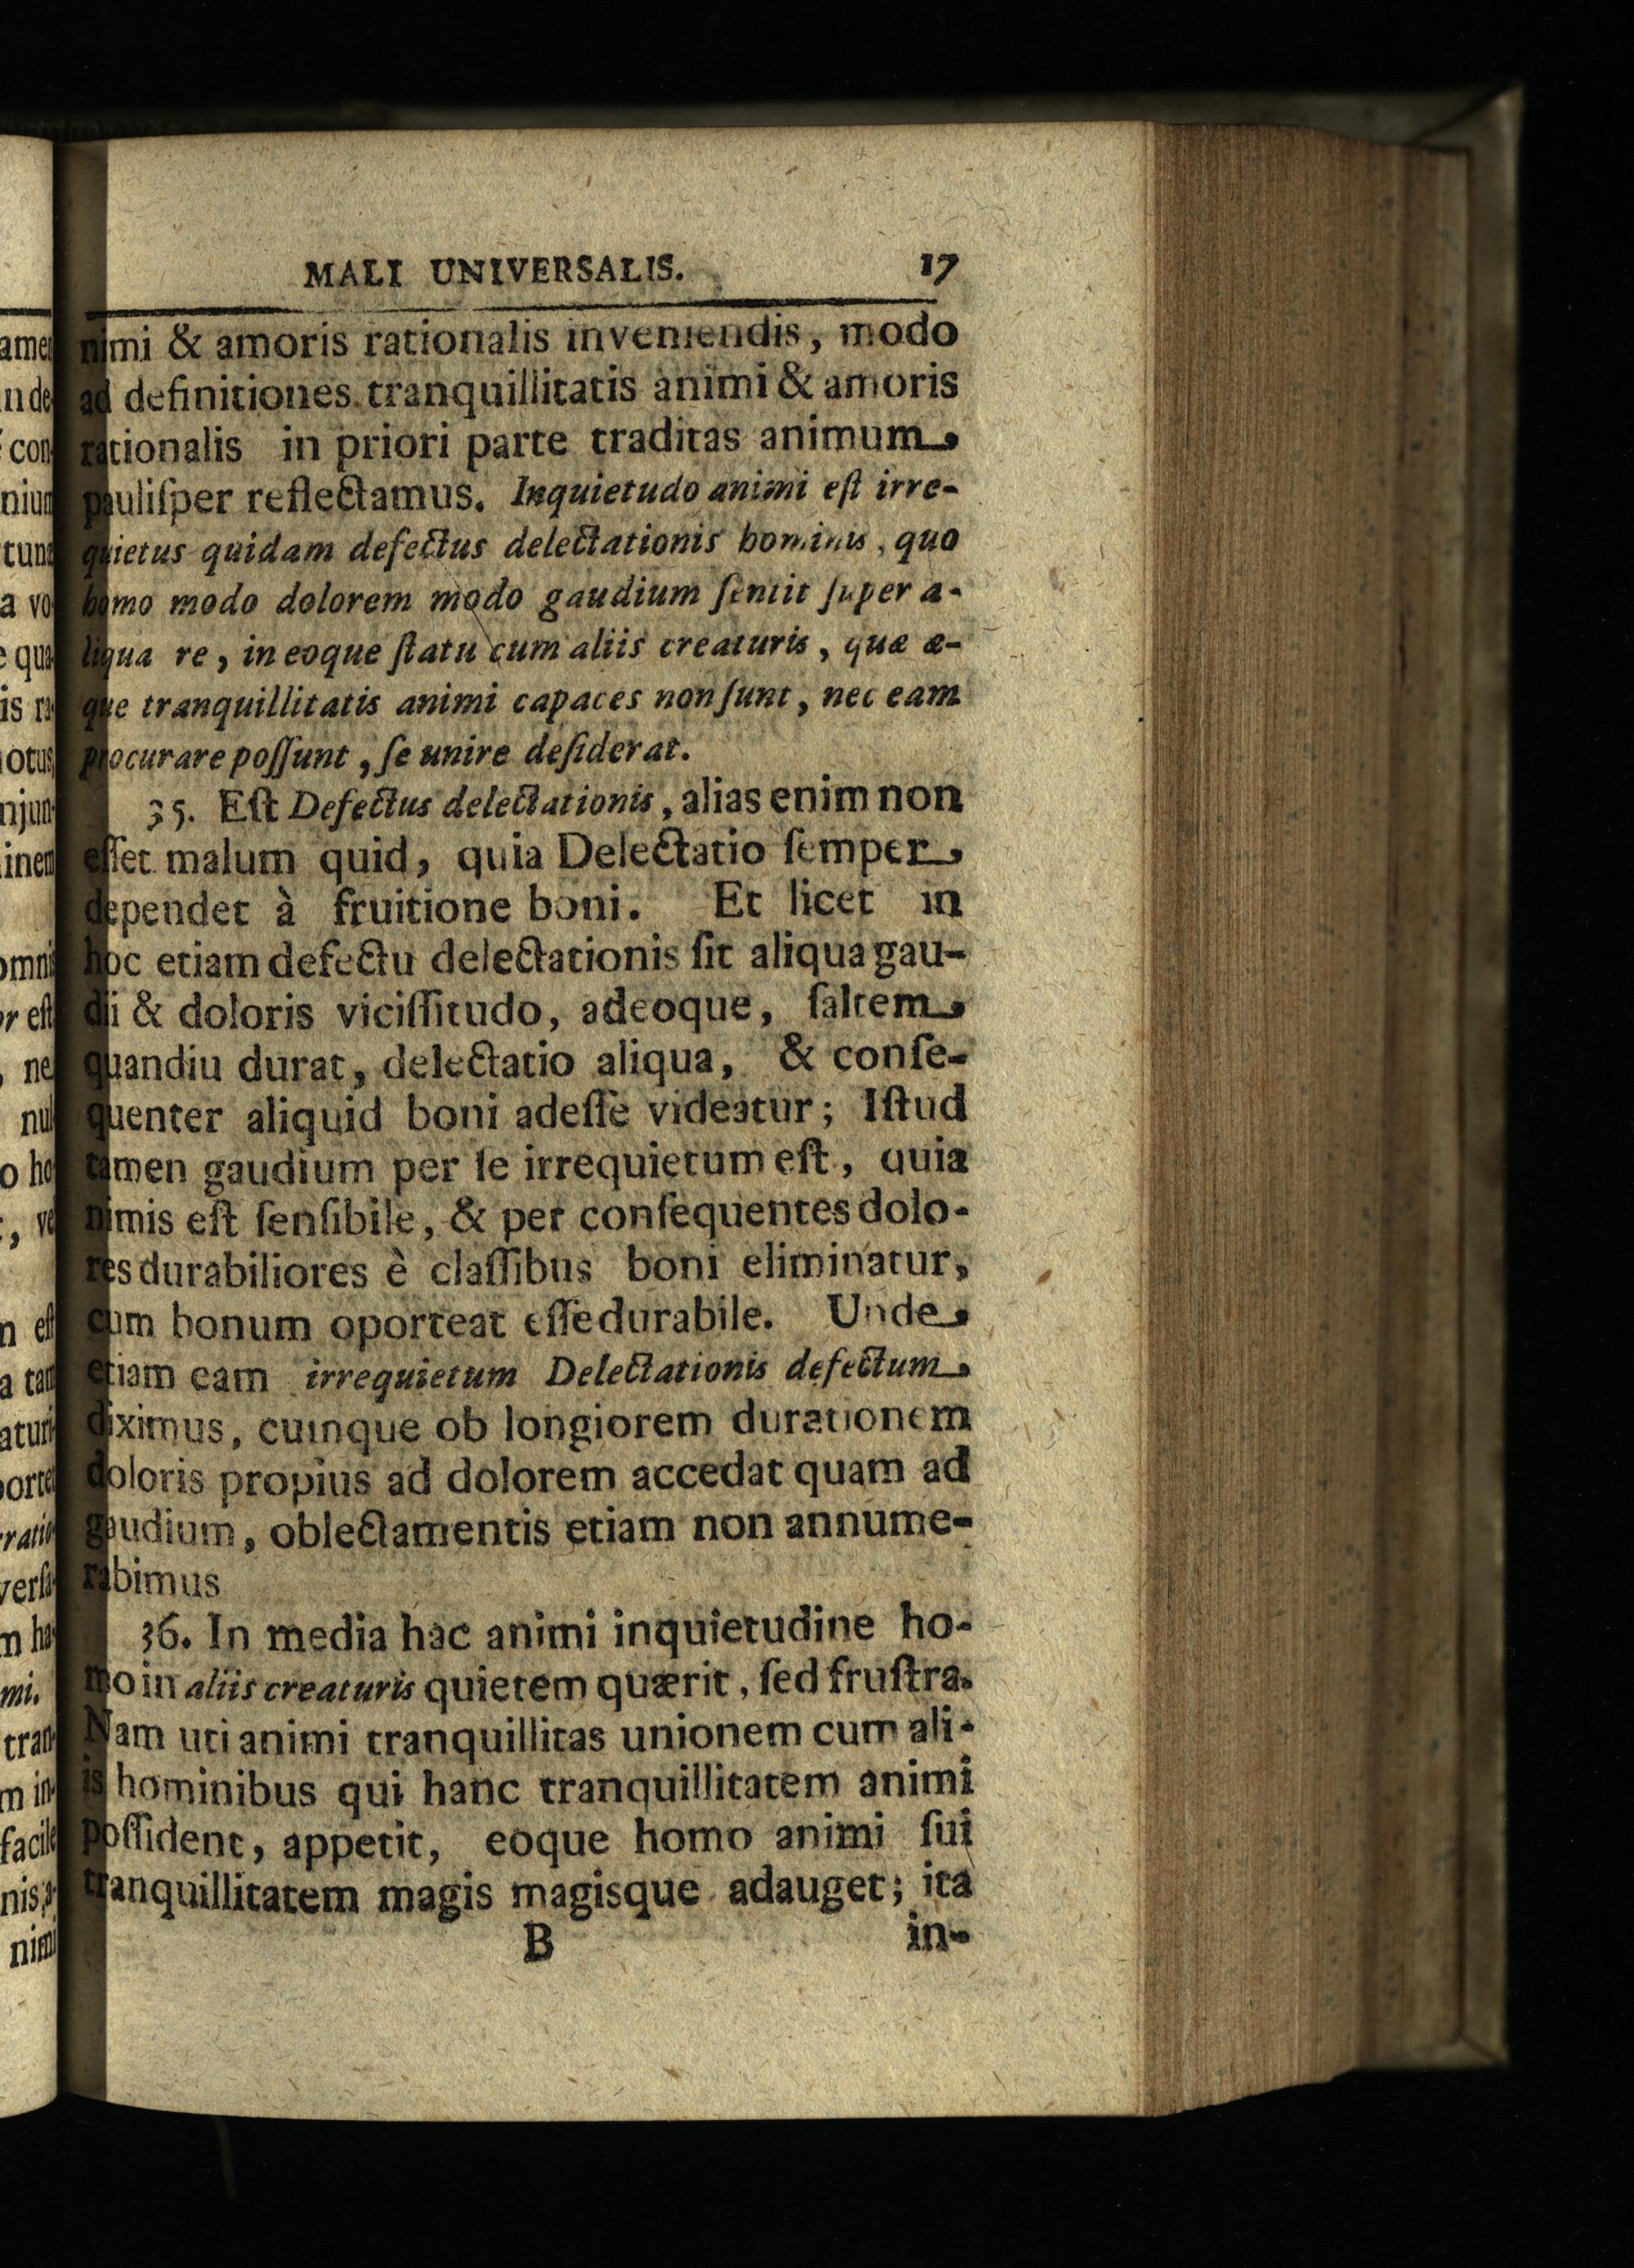 MALI UNIVERSALIS. 17
nimi & amoris rationalis inveniendis, modo
ad definitiones tranquillitatis animi & amoris
rationalis in priori parte traditas animum
pauliſper reflectamus. Inquietudo animi eſt irre-
quietus quidam defectus delectationis hominis, quo
homo modo dolorem modo gaudium ſentit ſuper a-
liqua re, in eoque ſtatu cum aliis creaturis, quæ æ-
que tranquillitatis animi capaces non ſunt, nec eam
procurare poſſunt, ſe unire deſiderat.
35. Eſt Defectus delectationis, alias enim non
eſſet malum quid, quia Delectatio ſemper
dependet à fruitione boni. Et licet in
hoc etiam defectu delectationis ſit aliqua gau-
dii & doloris viciſſitudo, adeoque, ſaltem
quandiu durat, delectatio aliqua, & conſe-
quenter aliquid boni adeſſe videatur; Iſtud
tamen gaudium per ſe irrequietum eſt, quia
nimis eſt ſenſibile, & per conſequentes dolo-
res durabiliores è claſſibus boni eliminatur,
cum bonum oporteat eſſe durabile. Unde
etiam eam irrequietum Delectationis defectum
diximus, cumque ob longiorem durationem
doloris propius ad dolorem accedat quam ad
gaudium, oblectamentis etiam non annume-
rabimus
36. In media hac animi inquietudine ho-
mo in aliis creaturis quietem quærit, ſed fruſtra.
Nam uti animi tranquillitas unionem cum ali-
is hominibus qui hanc tranquillitatem animi
poſſident, appetit, eoque homo animi ſui
tranquillitatem magis magisque adauget; ita
B in-